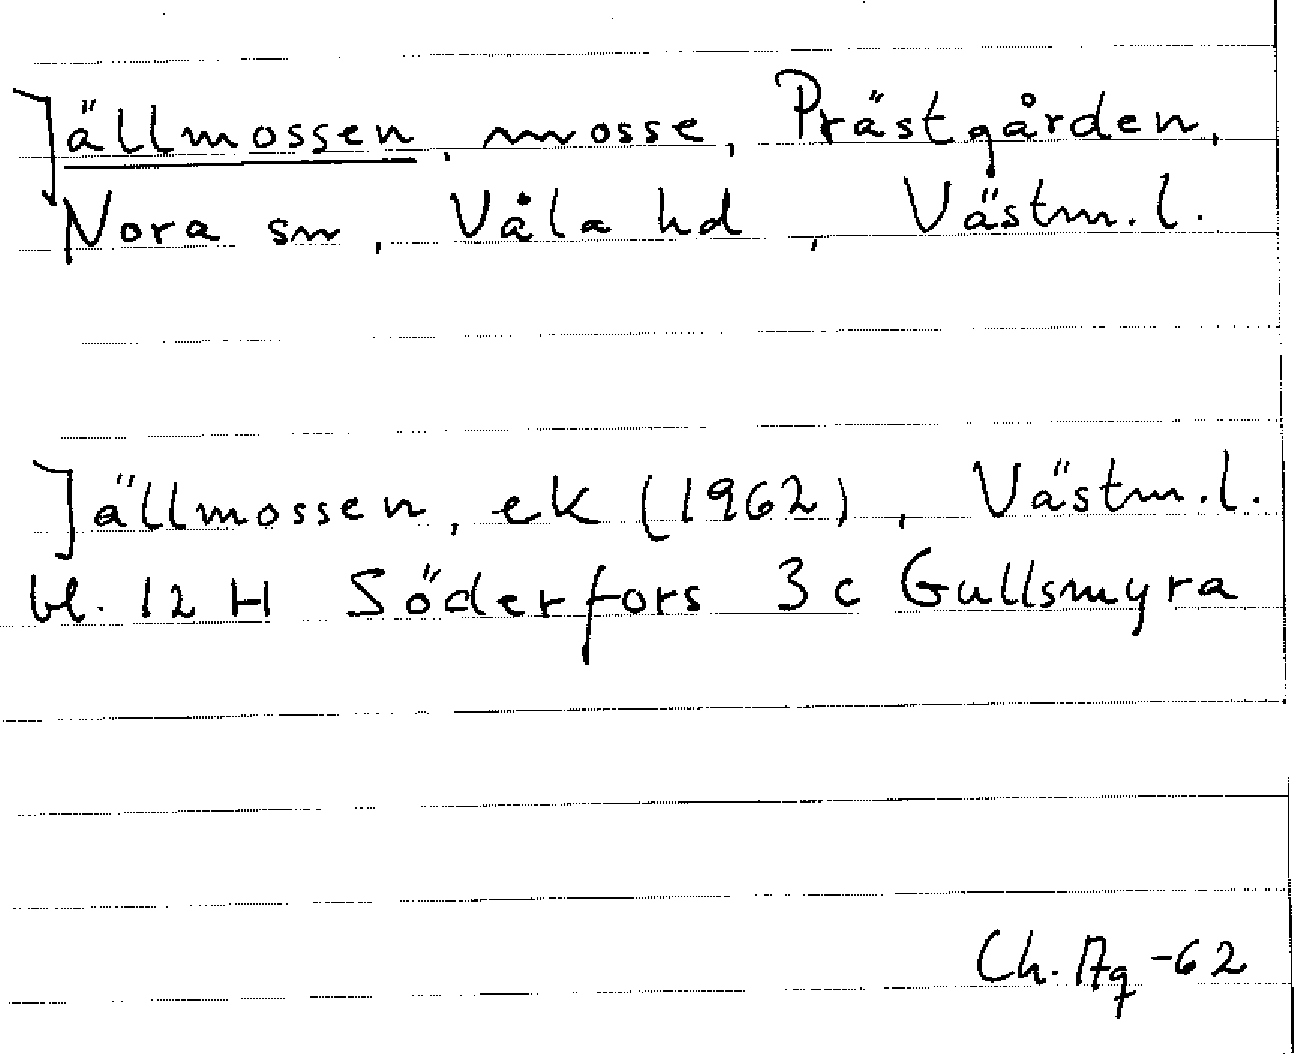 Jällmossen, mosse, Prästgården,
Nora sn, Våla hd, Västm. l.
Jällmossen, ek (1962), Västm. l.
bl. 12 H Söderfors 3 c Gullsmyra
Ch. Aq -62